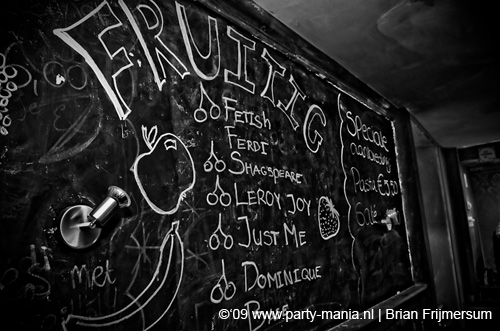 FRUITIG
FETISH
FERDI
SHAGSPEARE
LEROY JOY
JUST ME
DOMINIQUE
Speciale
aanbieding
Pasta €5,50
met
©'09 www.party-mania.nl | Brian Frijmersum